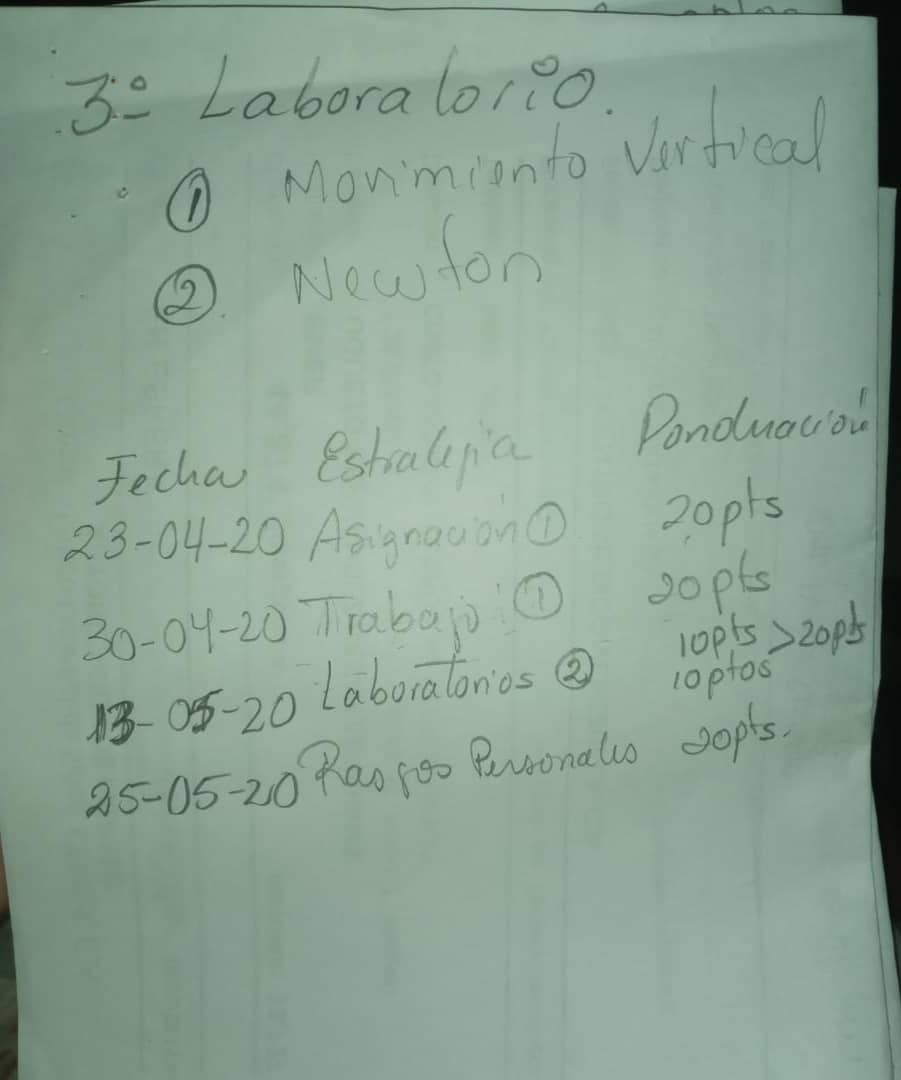 3º Laboratorio.
① Movimiento Vertical
② Newton
Fecha Estrategia Ponduación
23-04-20 Asignación ① 20pts
30-04-20 Trabajo: ① 20pts
13-05-20 Laboratorios ② 10pts >20pts
10ptos
25-05-20 Rasgos Personales 20pts.